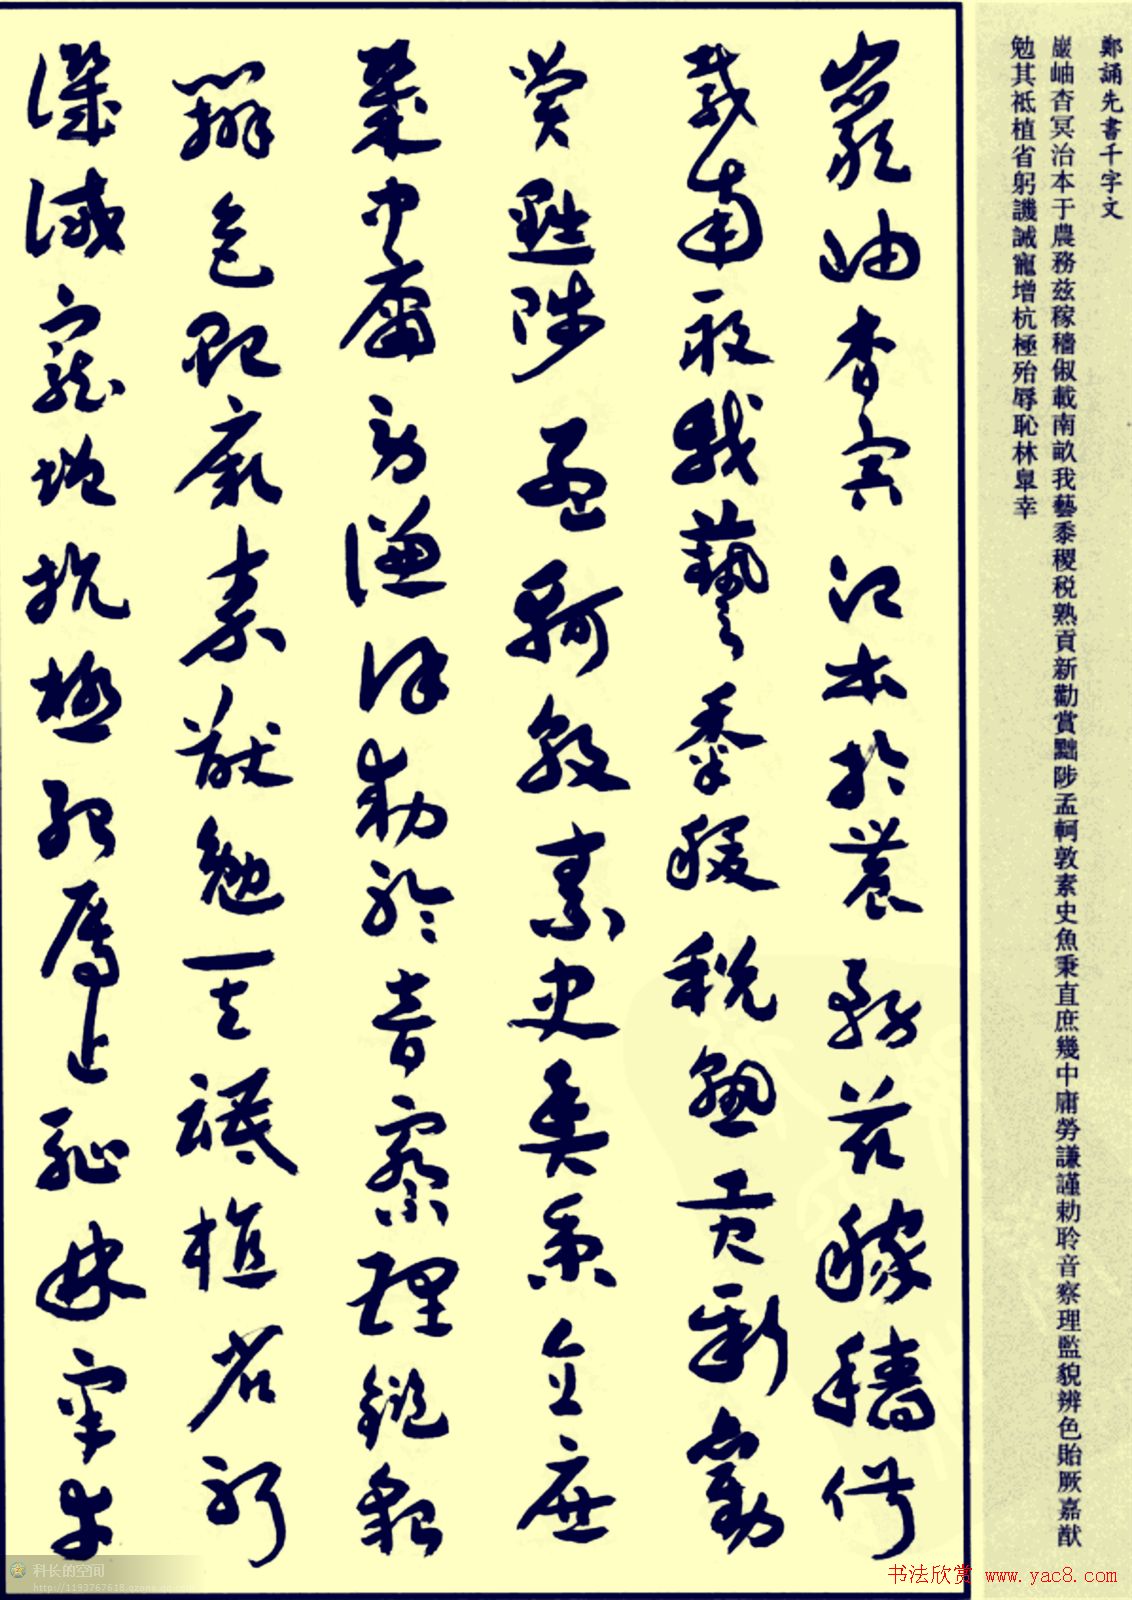 鄭誦先書千字文
巖岫杳冥治本于農務兹稼穡俶載南畝我藝黍稷税熟貢新勸賞黜陟孟軻敦素史魚秉直庶幾中庸勞謙謹勅聆音察理監貌辨色貽厥嘉猷
勉其祗植省躬譏誡寵增杭極殆辱恥林皋幸
巖岫杳冥治本於農務兹稼穡俶
載南畝我藝黍稷税熟貢新勸
賞黜陟孟軻敦素史魚秉直庶
幾中庸勞謙謹勅聆音察理鑑貌
辨色貽厥嘉猷勉其祗植省躬
譏誡寵增抗極殆辱近恥林皋幸
科长的空间
http://1193767618.qzone.qq.com
书法欣赏 www.yac8.com